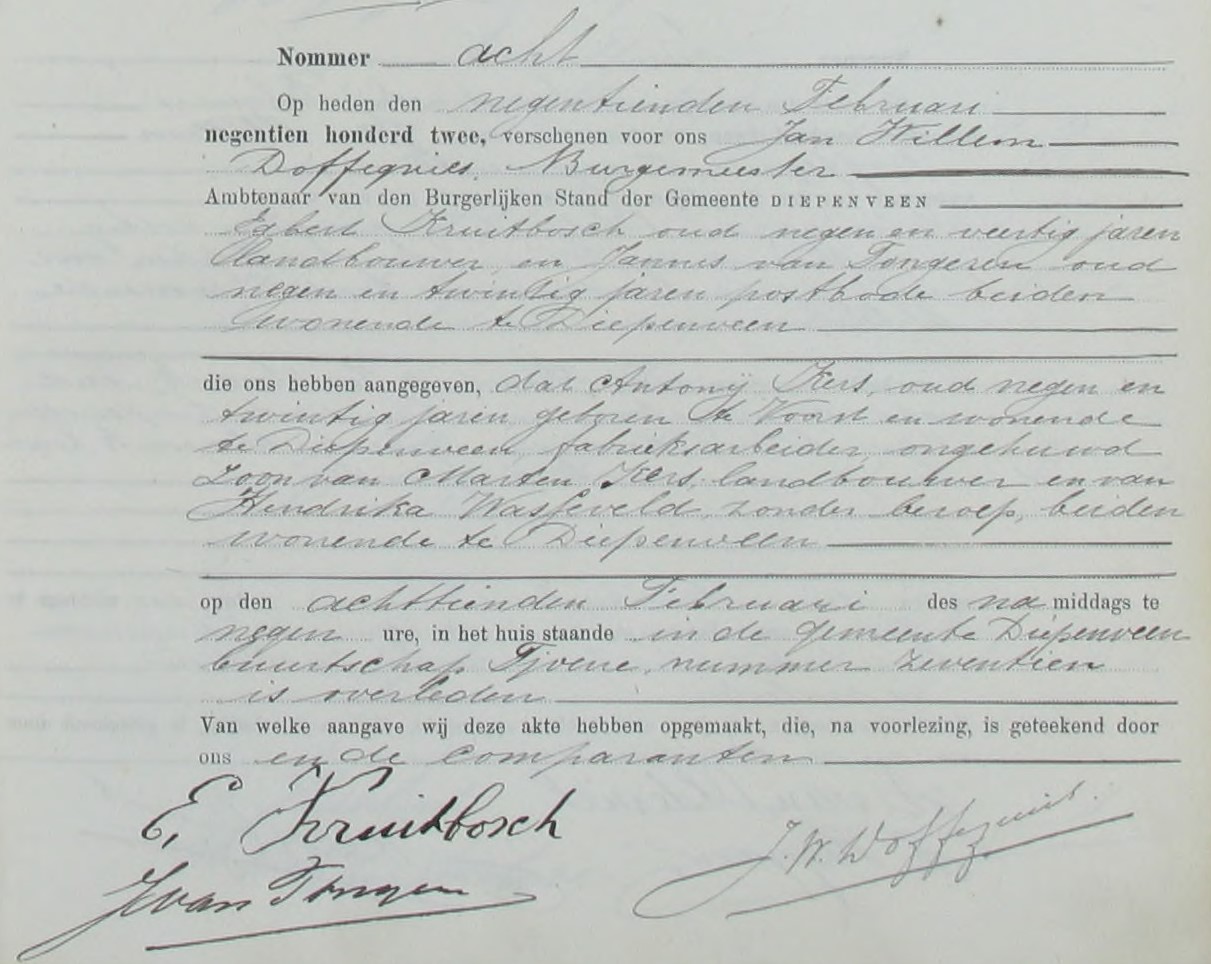 Nommer acht
Op heden den negentienden Februari
negentien honderd twee, verschenen voor ons Jan Willem
Doffegnies, Burgemeester
Ambtenaar van den Burgerlijken Stand der Gemeente DIEPENVEEN
Egbert Kruitbosch oud negen en veertig jaren
landbouwer en Jannes van Tongeren oud
negen en twintig jaren postbode beiden
wonende te Diepenveen
die ons hebben aangegeven, dat Antonij Kers, oud negen en
twintig jaren geboren te Voorst en wonende
te Diepenveen, fabrieksarbeider, ongehuwd
zoon van Marten Kers, landbouwer en van
Hendrika Wasseveld, zonder beroep, beiden
wonende te Diepenveen
op den achttienden Februari des na middags te
negen ure, in het huis staande in de gemeente Diepenveen
buurtschap Tjoene, nummer zeventien
is overleden
Van welke aangave wij deze akte hebben opgemaakt, die, na voorlezing, is geteekend door
ons en de comparanten
E. Kruitbosch
J.W. Doffegnies.
J van Tongeren